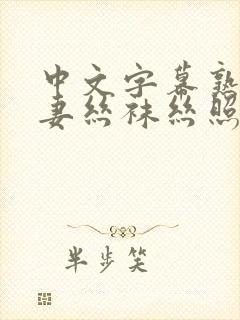 中文字幕熟
妻丝袜丝照
半步笑